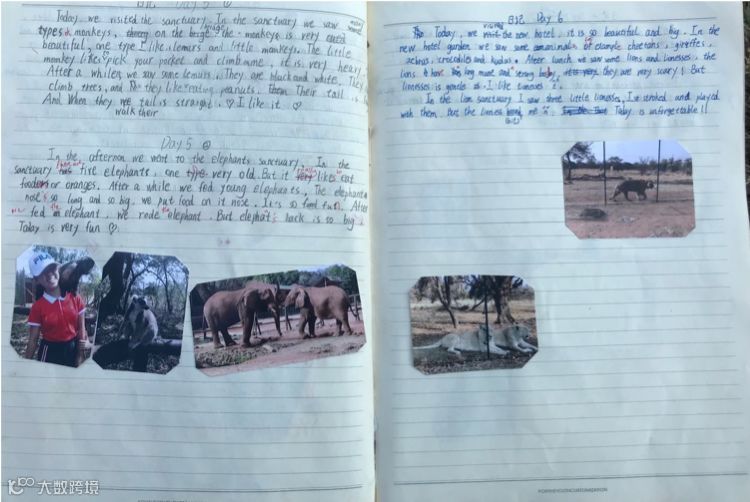 Day 5
Today, we visited the sanctuary. In the sanctuary we saw many
types monkeys, on the the monkeys is very
beautiful, one type I like lemurs and little monkeys. The little
monkey likes pick your pocket and climb me, it is very heavy
After a while, we saw some lemurs. They are black and white. They
climb trees, and they like eating peanuts. Their tail is
And When they tail is straight. ♡ I like it ♡
walk their
Day 5
In the afternoon we went to the elephants sanctuary. In the
sanctuary has five elephants, one type very old. But it very likes eat
food or oranges. After a while we fed young elephants, The elephant
nose's so long and so big, we put food on it nose. It's so fun. After
we fed the elephant, we rode the elephant. But elephat's back is so big
Today is very fun ♡
Day 6
Today, we visit the new hotel, it is so beautiful and big. In the
new hotel garden we saw some animals of example cheetahs, giraffes,
zebras, crocodiles and kudus. After lunch we saw some lions and lionesses, the
lions have long mane and strong body, they are very scary! But
lionesses is gentle. I like lionesses
In the lion sanctuary I saw three little lionesses, I've stroked and played
with them. But the lioness me Today is unforgettable!!
FILA
大数跨境